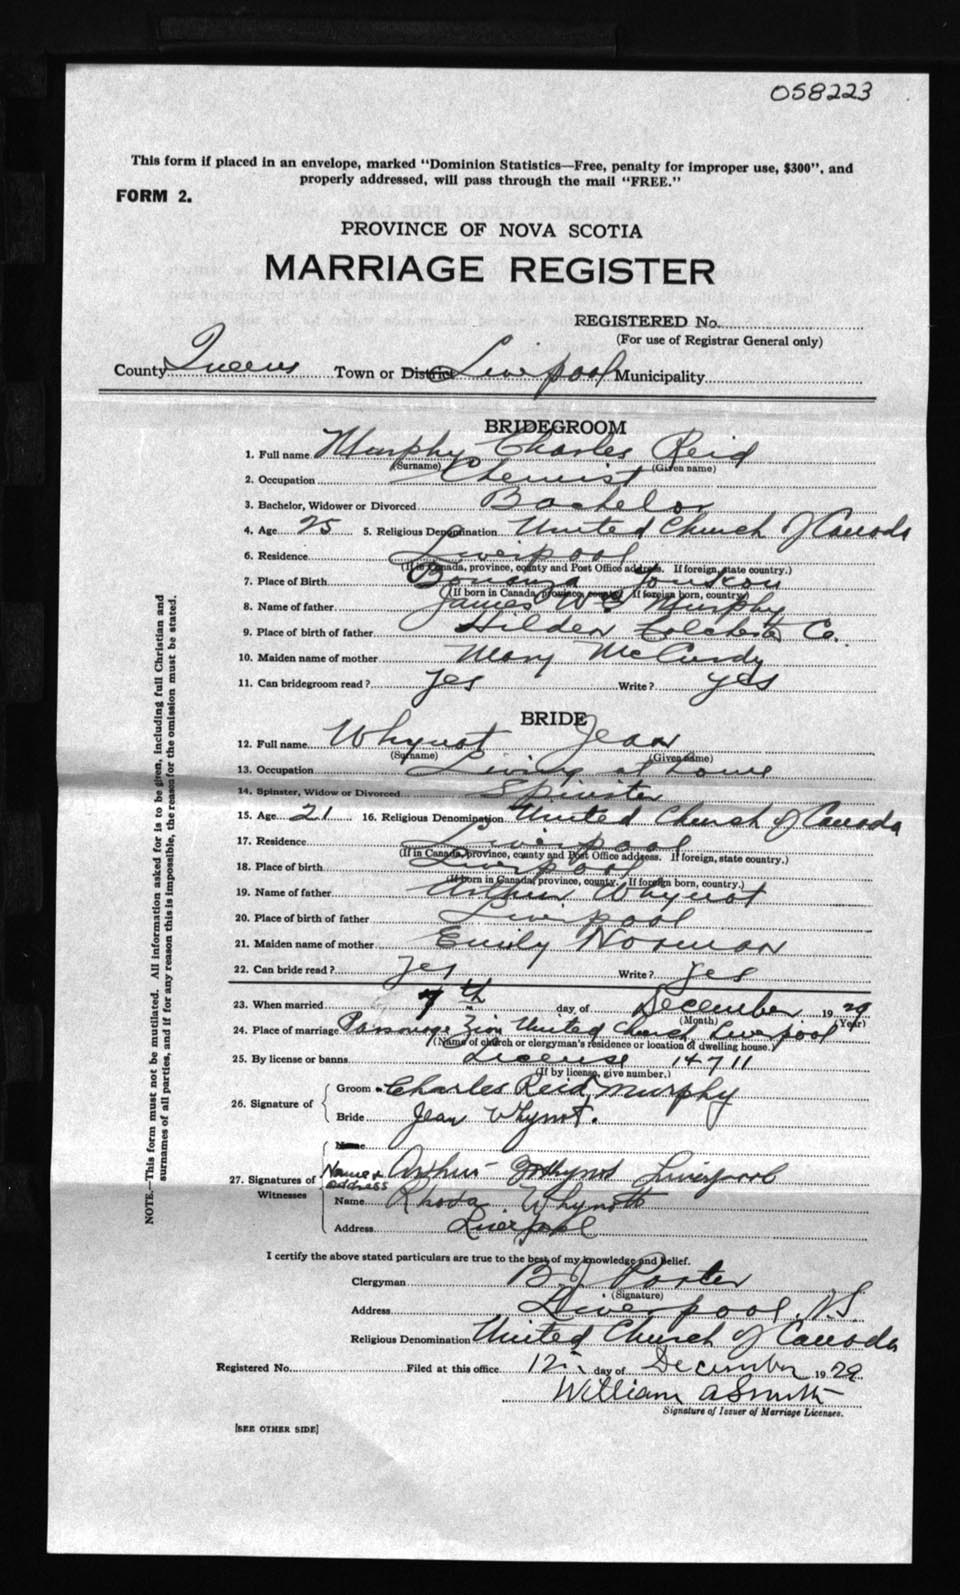 058223
This form if placed in an envelope, marked "Dominion Statistics—Free, penalty for improper use, $300", and
properly addressed, will pass through the mail "FREE."
FORM 2.
PROVINCE OF NOVA SCOTIA
MARRIAGE REGISTER
REGISTERED No.
(For use of Registrar General only)
County Queens Town or District Liverpool Municipality
BRIDEGROOM
1. Full name Murphy Charles Reid
(Surname) (Given name)
2. Occupation Chemist
3. Bachelor, Widower or Divorced Bachelor
4. Age 25 5. Religious Denomination United Church of Canada
6. Residence Liverpool
(If in Canada, province, county and Post Office address. If foreign, state country.)
7. Place of Birth Bonanza Youkon
(If born in Canada, province, county. If foreign born, country.)
8. Name of father James Murphy
9. Place of birth of father Hilden Colchester Co.
10. Maiden name of mother Mary McCurdy
11. Can bridegroom read? yes Write? yes
BRIDE
12. Full name Whynot Jean
(Surname) (Given name)
13. Occupation Living at home
14. Spinster, Widow or Divorced Spinster
15. Age 21 16. Religious Denomination United Church of Canada
17. Residence Liverpool
(If in Canada, province, county and Post Office address. If foreign, state country.)
18. Place of birth Liverpool
(If born in Canada, province, county. If foreign born, country.)
19. Name of father Arthur Whynot
20. Place of birth of father Liverpool
21. Maiden name of mother Emily Norman
22. Can bride read? yes Write? yes
23. When married 7th day of December 1929
(Month) (Year)
24. Place of marriage Parsonage Zion United Church Liverpool
(Name of church or clergyman's residence or location of dwelling house.)
25. By license or banns License 14711
(If by license, give number.)
26. Signature of Groom Charles Reid Murphy
Bride Jean Whynot.
27. Signatures of Witnesses
Name
Name & address Arthur Whynot Liverpool
Name Rhoda Whynott
Address Liverpool
I certify the above stated particulars are true to the best of my knowledge and belief.
Clergyman B. J. Porter
(Signature)
Address Liverpool, N.S.
Religious Denomination United Church of Canada
Registered No. Filed at this office 12th day of December 1929
William A Smith
Signature of Issuer of Marriage Licenses.
[SEE OTHER SIDE]
NOTE.—This form must not be mutilated. All information asked for is to be given, including full Christian and
surnames of all parties, and if for any reason this is impossible, the reason for the omission must be stated.